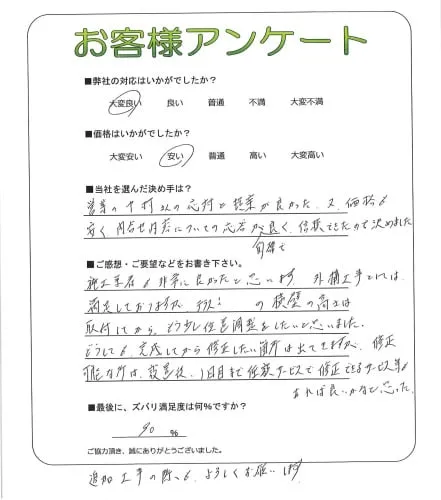 お客様アンケート
■弊社の対応はいかがでしたか?
大変良い 良い 普通 不満 大変不満
■価格はいかがでしたか?
大変安い 安い 普通 高い 大変高い
■当社を選んだ決め手は?
営業の中村さんの応対と提案が良かった。又、価格も
安く、問合せ内容についての応答が良く、信頼できたので決めました
■ご感想・ご要望などをお書き下さい。
施工業者も非常に良かったと思います。外構工事としては、
満足しておりますが、 の横壁の高さは
取付してから、もう少し位置調整をしたいと思いました。
どうしても、完成してから修正したい箇所は出てきますが、修正
可能な所は、設置後、1日目まで無償サービスで修正できるサービス等
あれば良いかなと思った。
■最後に、ズバリ満足度は何%ですか?
90 %
ご協力頂き、誠にありがとうございました。
追加工事の際も、よろしくお願いします